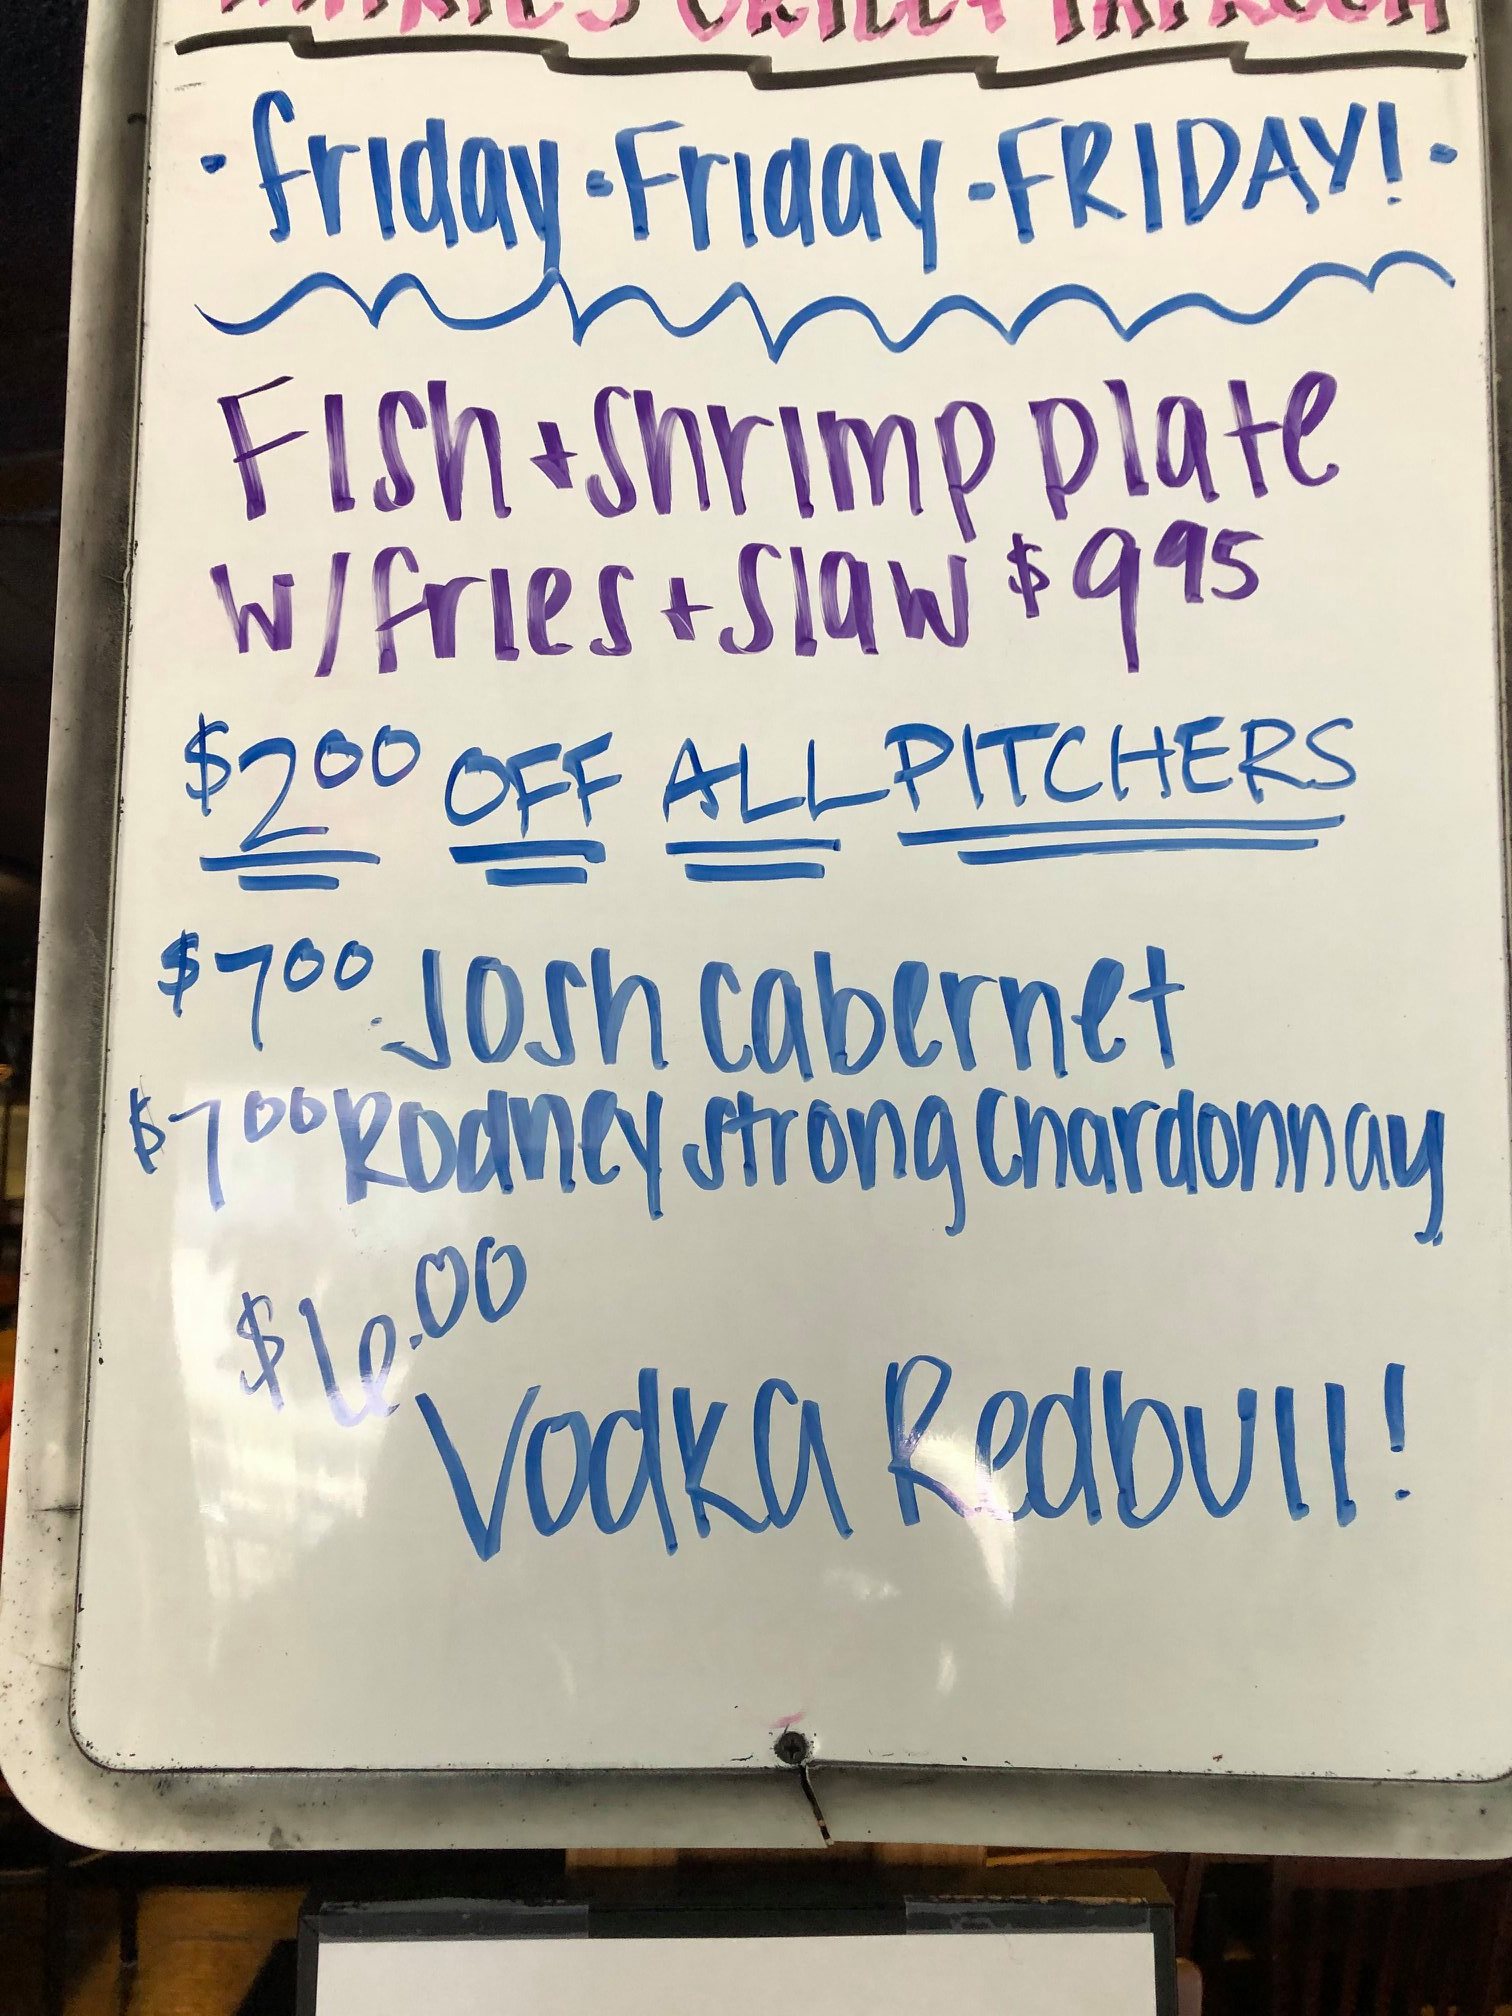 ·friday·Friday·FRIDAY!·
Fish+shrimp plate
w/fries+slaw $9 95
$2 00 OFF ALL PITCHERS
$7 00 Josh Cabernet
$7 00 Rodney Strong Chardonnay
$6.00
Vodka Redbull!